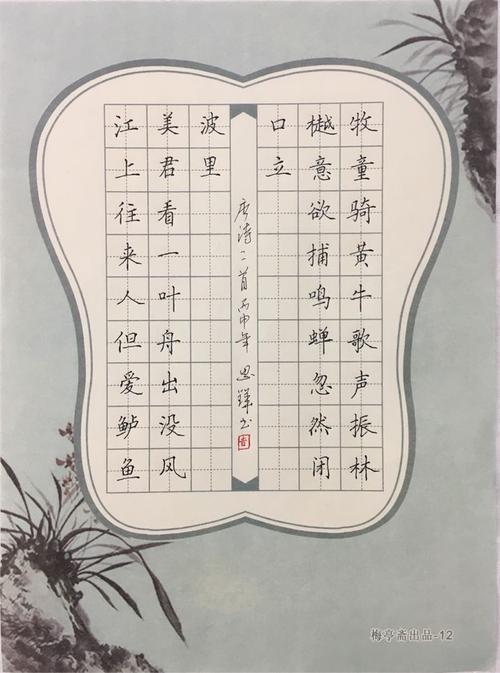 牧童骑黄牛歌声振林
樾意欲捕鸣蝉忽然闭
口立
唐诗二首丙申年思书
江上往来人但爱鲈鱼
美君看一叶舟出没风
波里
梅亭斋出品-12